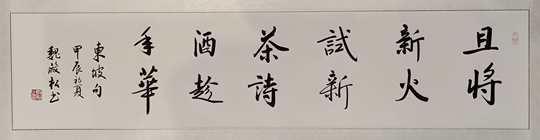 且将
新火
試新
茶詩
酒趁
年華
東坡句
甲辰初夏
魏 松书